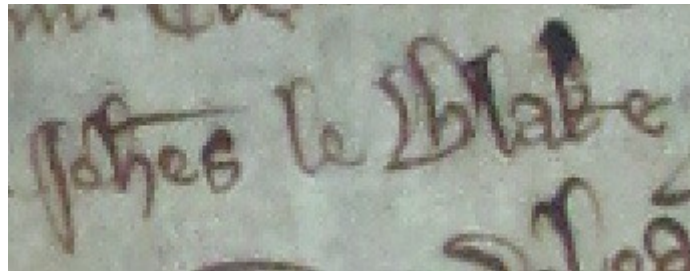 Johes le Blake